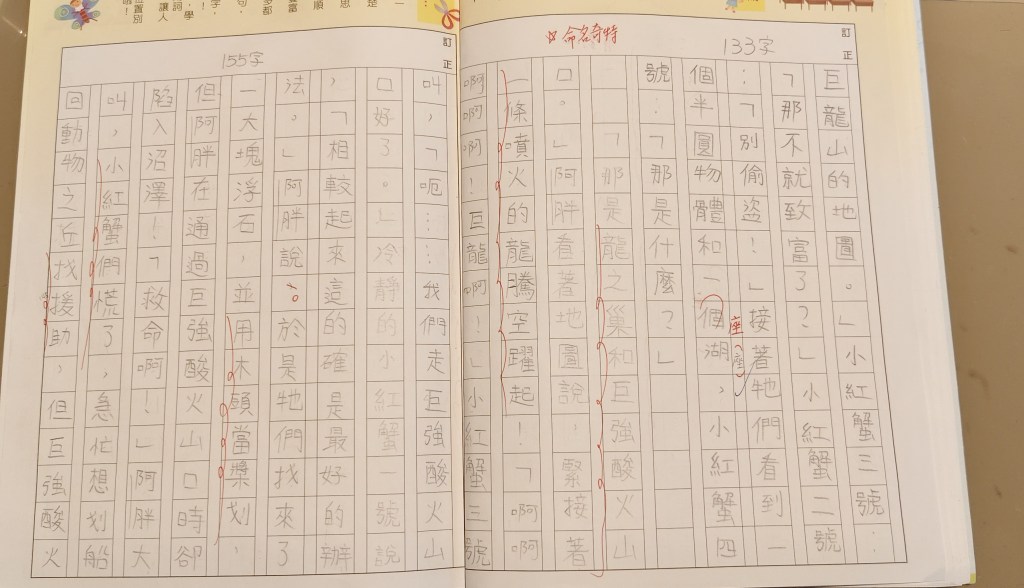 訂正
133字
☆命名奇特
巨龍山的地圖。」小紅蟹三號：
「那不就致富了？」小紅蟹二號
：「別偷盜！」接著牠們看到一
座
個半圓物體和一個湖，小紅蟹四
號：「那是什麼？」
「那是龍之巢和巨強酸火山
口。」阿胖看著地圖說，緊接著
一條噴火的龍騰空躍起！「啊啊
啊啊啊！巨龍啊！」小紅蟹三號
訂正
155字
叫，「呃……我們走巨強酸火山
口好了。」冷靜的小紅蟹一號說
，「相較起來這的確是最好的辦
法。」阿胖說。於是牠們找來了
一大塊浮石，並用木頭當槳划，
但阿胖在通過巨強酸火山口時卻
陷入沼澤！「救命啊！」阿胖大
叫，小紅蟹們慌了，急忙想划船
回動物之丘找援助，但巨強酸火